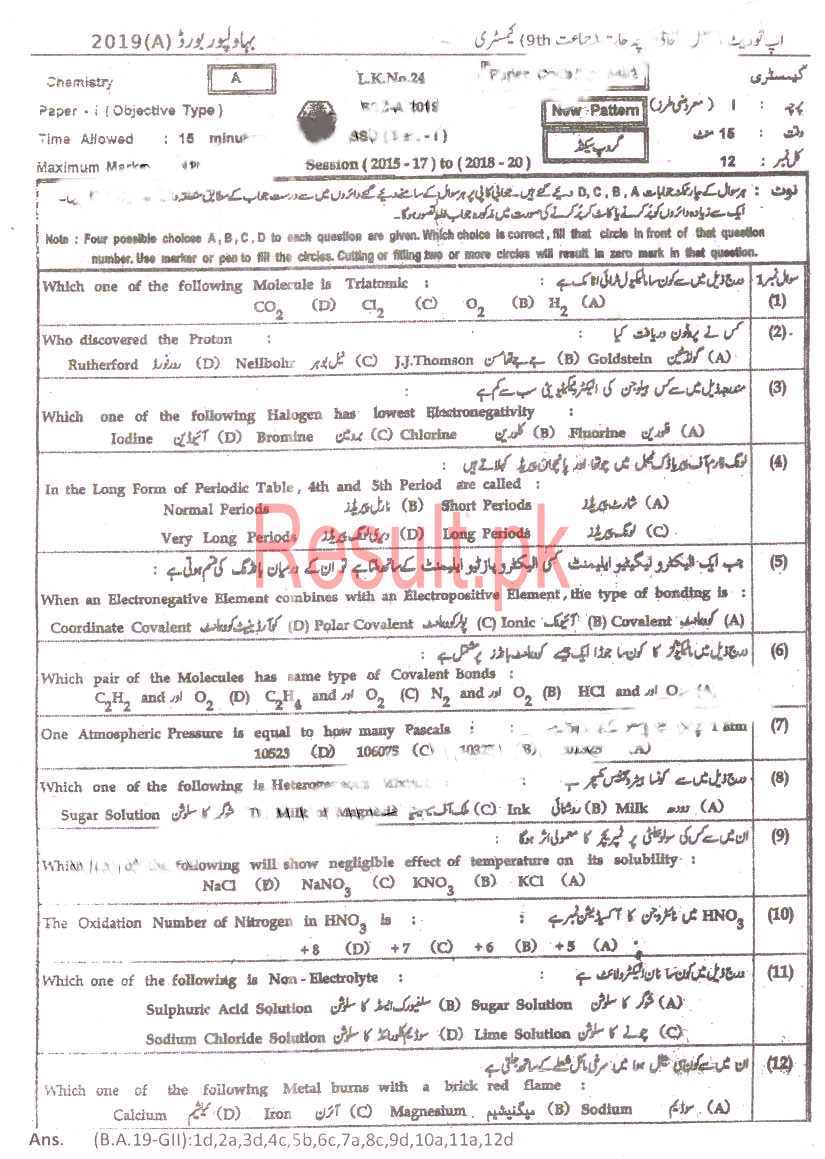 2019(A) بہاولپور بورڈ (جماعت 9th) کیمسٹری
Chemistry A L.K.No.24 کیمسٹری
Paper - i (Objective Type) New Pattern (معروضی طرز) I : پرچہ
Time Allowed : 15 minutes گروپ سیکنڈ وقت : 15 منٹ
Maximum Marks Session (2015 - 17) to (2018 - 20) کل نمبر : 12
نوٹ : ہر سوال کے چار ممکنہ جوابات D, C, B, A دیے گئے ہیں۔ جوابی کاپی پر ہر سوال کے سامنے دیے گئے دائروں میں سے درست جواب کے مطابق متعلقہ
ایک سے زیادہ دائروں کو پُر کرنے یا کاٹ کر پُر کرنے کی صورت میں مذکورہ جواب غلط تصور ہوگا۔
Note : Four possible choices A, B, C, D to each question are given. Which choice is correct, fill that circle in front of that question
number. Use marker or pen to fill the circles. Cutting or filling two or more circles will result in zero mark in that question.
Which one of the following Molecule is Triatomic : درج ذیل میں سے کون سا مالیکیول ٹرائی اٹامک ہے : سوال نمبر 1
CO2 (D) Cl2 (C) O2 (B) H2 (A) (1)
Who discovered the Proton : کس نے پروٹون دریافت کیا (2)
Rutherford ردرفورڈ (D) Neilbohr نیل بوہر (C) J.J.Thomson جے جے تھامسن (B) Goldstein گولڈسٹین (A)
مندرجہ ذیل میں سے کس ہیلوجن کی الیکٹرونیگیٹیویٹی سب سے کم ہے : (3)
Which one of the following Halogen has lowest Electronegativity :
Iodine آئیوڈین (D) Bromine برومین (C) Chlorine کلورین (B) Fluorine فلورین (A)
لونگ فارم آف پیریاڈک ٹیبل میں چوتھا اور پانچواں پیریڈ کہلاتے ہیں : (4)
In the Long Form of Periodic Table, 4th and 5th Period are called :
Normal Periods نارمل پیریڈز (B) Short Periods شارٹ پیریڈز (A)
Very Long Periods ویری لونگ پیریڈز (D) Long Periods لونگ پیریڈز (C)
Result.pk
جب ایک الیکٹرونیگیٹیو ایلیمنٹ کسی الیکٹروپازیٹو ایلیمنٹ کے ساتھ ملتا ہے تو ان کے درمیان بانڈنگ کی قسم ہوتی ہے : (5)
When an Electronegative Element combines with an Electropositive Element, the type of bonding is :
Coordinate Covalent کوآرڈینیٹ کوویلنٹ (D) Polar Covalent پولر کوویلنٹ (C) Ionic آئیونک (B) Covalent کوویلنٹ (A)
درج ذیل میں مالیکیولز کا کون سا جوڑا ایک جیسے کوویلنٹ بانڈز پر مشتمل ہے : (6)
Which pair of the Molecules has same type of Covalent Bonds :
C2H2 and اور O2 (D) C2H4 and اور O2 (C) N2 and اور O2 (B) HCl and اور O
One Atmospheric Pressure is equal to how many Pascals : 1 atm (7)
10523 (D) 106075 (C) (B) (A)
Which one of the following is درج ذیل میں سے کونسا ہیٹروجینس مکسچر ہے (8)
Sugar Solution شوگر کا سلوشن Milk of Magnesia ملک آف میگنیشیا (C) Ink روشنائی (B) Milk دودھ (A)
ان میں سے کس کی سولوبلٹی پر ٹمپریچر کا معمولی اثر ہوگا : (9)
Which of the following will show negligible effect of temperature on its solubility :
NaCl (D) NaNO3 (C) KNO3 (B) KCl (A)
The Oxidation Number of Nitrogen in HNO3 is : HNO3 میں نائٹروجن کا آکسیڈیشن نمبر ہے : (10)
+8 (D) +7 (C) +6 (B) +5 (A)
Which one of the following is Non-Electrolyte : درج ذیل میں کون سا نان الیکٹرولائٹ ہے : (11)
Sulphuric Acid Solution سلفیورک ایسڈ کا سلوشن (B) Sugar Solution شوگر کا سلوشن (A)
Sodium Chloride Solution سوڈیم کلورائیڈ کا سلوشن (D) Lime Solution چونے کا سلوشن (C)
ان میں سے کون سی میٹل ہوا میں سرخی مائل شعلے کے ساتھ جلتی ہے (12)
Which one of the following Metal burns with a brick red flame :
Calcium کیلشیم (D) Iron آئرن (C) Magnesium میگنیشیم (B) Sodium سوڈیم (A)
Ans. (B.A.19-GII):1d,2a,3d,4c,5b,6c,7a,8c,9d,10a,11a,12d